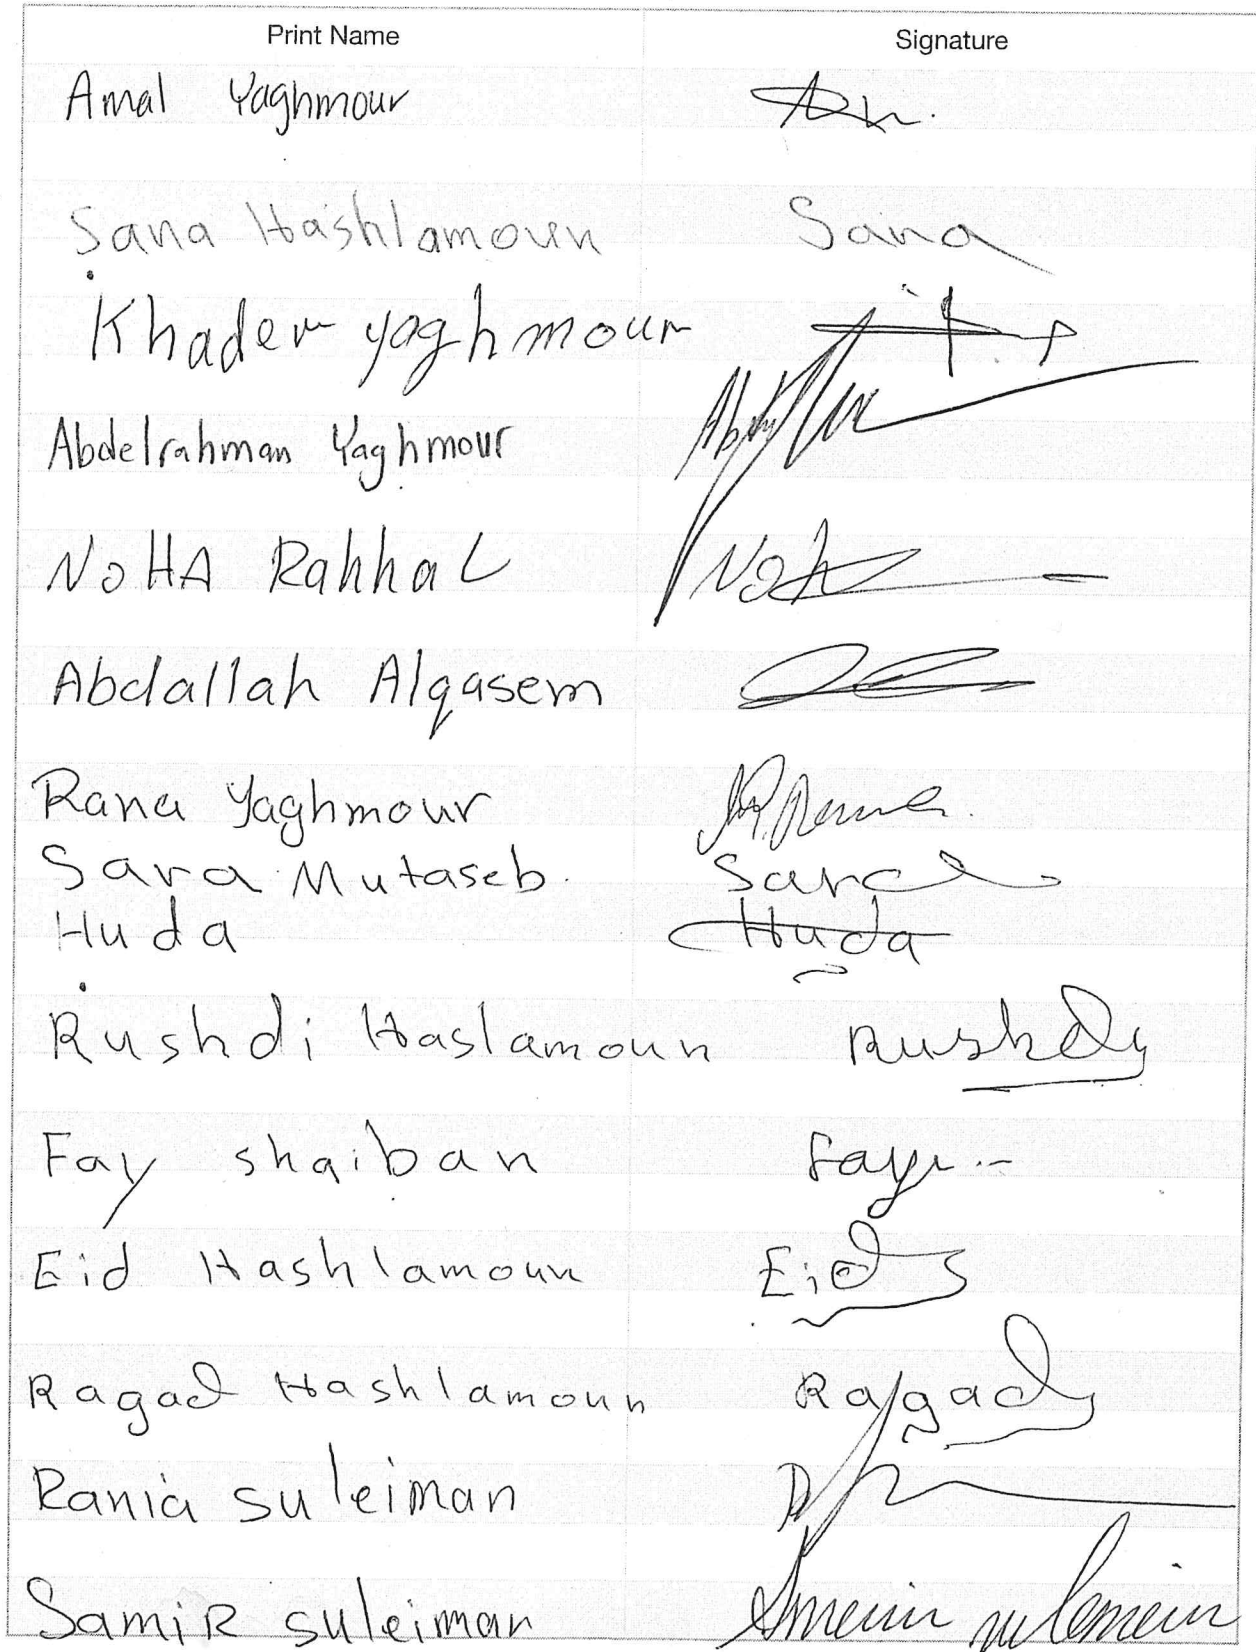 Print Name Signature
Amal Yaghmour
Sana Hashlamoun Sana
Khader yaghmour
Abdelrahman Yaghmour
NoHA Rahhal Noha
Abdallah Alqasem
Rana Yaghmour
Sara Mutaseb. Sara
Huda Huda
Rushdi Haslamoun Rushdy
Fay shaiban Fay
Eid Hashlamoun Eid
Ragad Hashlamoun Ragad
Rania suleiman
SamiR suleiman